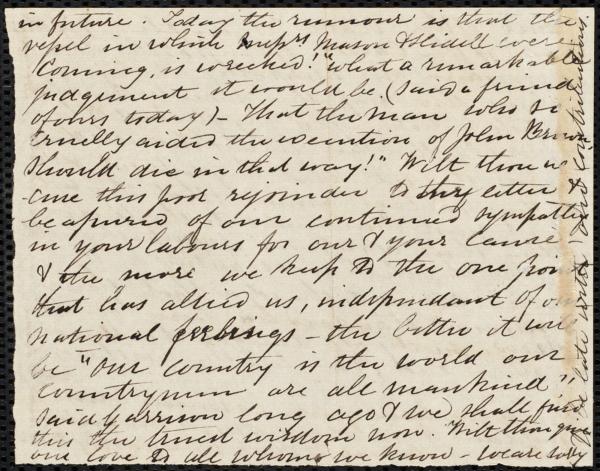 in future. Today the rumour is that the
vessel in which Mess.rs Mason & Slidell were
coming, is wrecked! "What a remarkable
judgement it would be (said a friend
of ours today) - That the man who so
cruelly aided the execution of John Brown
should die in that way!" Wilt thou ex
cuse this poor rejoinder to thy letter &
be assured of our continued sympathy
in your labours for our & your cause
& the more we keep to the one point
that has allied us, independant of our
national feelings - the better it will
be "Our country is the world our
countrymen are all mankind",
said Garrison long ago & we shall find
this the truest wisdom now. Wilt thou give
our love to all whom we know - We are sorry
to be late with our contributions.